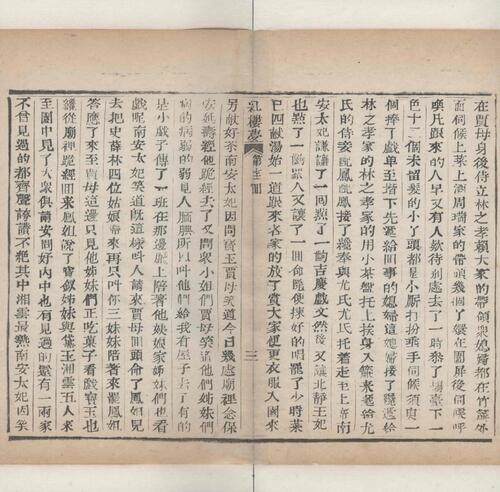 在賈母身後侍立林之孝頼大家的帶領衆媳婦都在竹簾外
面伺候上菜上酒周瑞家的帶領幾個丫鬟在圍屏後伺候呼
喚凡跟來的人早又有人欵待别處去了一時叅了塲臺下一
色十二個未留髮的小丫頭都是小厮打扮垂手伺候須臾一
個捧了戲单至堦下先遞給囬事的媳婦這媳婦接了纔遞給
林之孝家的林之孝家的用小茶盤托上挨身入簾來遞給尤
氏的侍妾配鳳配鳳接了纔奉與尤氏尤氏托着走至上席南
安太妃謙讓了一囬點了一齣吉慶戲文然後又讓北靜王妃
也點了一齣衆人又讓了一囬命隨便揀好的唱罷了少時菜
已四献湯始一道跟來各家的放了賞大家便更衣服入園來
紅樓夢 第七十一囬 三
另献好茶南安太妃因問寶玉賈母笑道今日幾處廟裡念保
安延夀經他跪經去了又問衆小姐們賈母笑道他們姊妹們
病的病弱的弱見人腼腆所以叫他們給我看屋子去了有的
是小戲子傳了一班在那邊廳上陪著他姨娘家姊妹們也看
戲呢南安太妃笑道既這様叫人請來賈母囬頭命了鳳姐兒
去把史薛林四位姑娘帶來再只叫你三妹妹陪著來罷鳳姐
答應了來至賈母這邊只見他姊妹們正吃菓子看戲寶玉也
纔從廟裡跪經囬來鳳姐說了寶釵姊妹與黛玉湘雲五人來
至園中見了大衆俱請安問好內中也有見過的還有一兩家
不曾見過的都齊聲誇讚不絕其中湘雲最熟南安太妃因笑